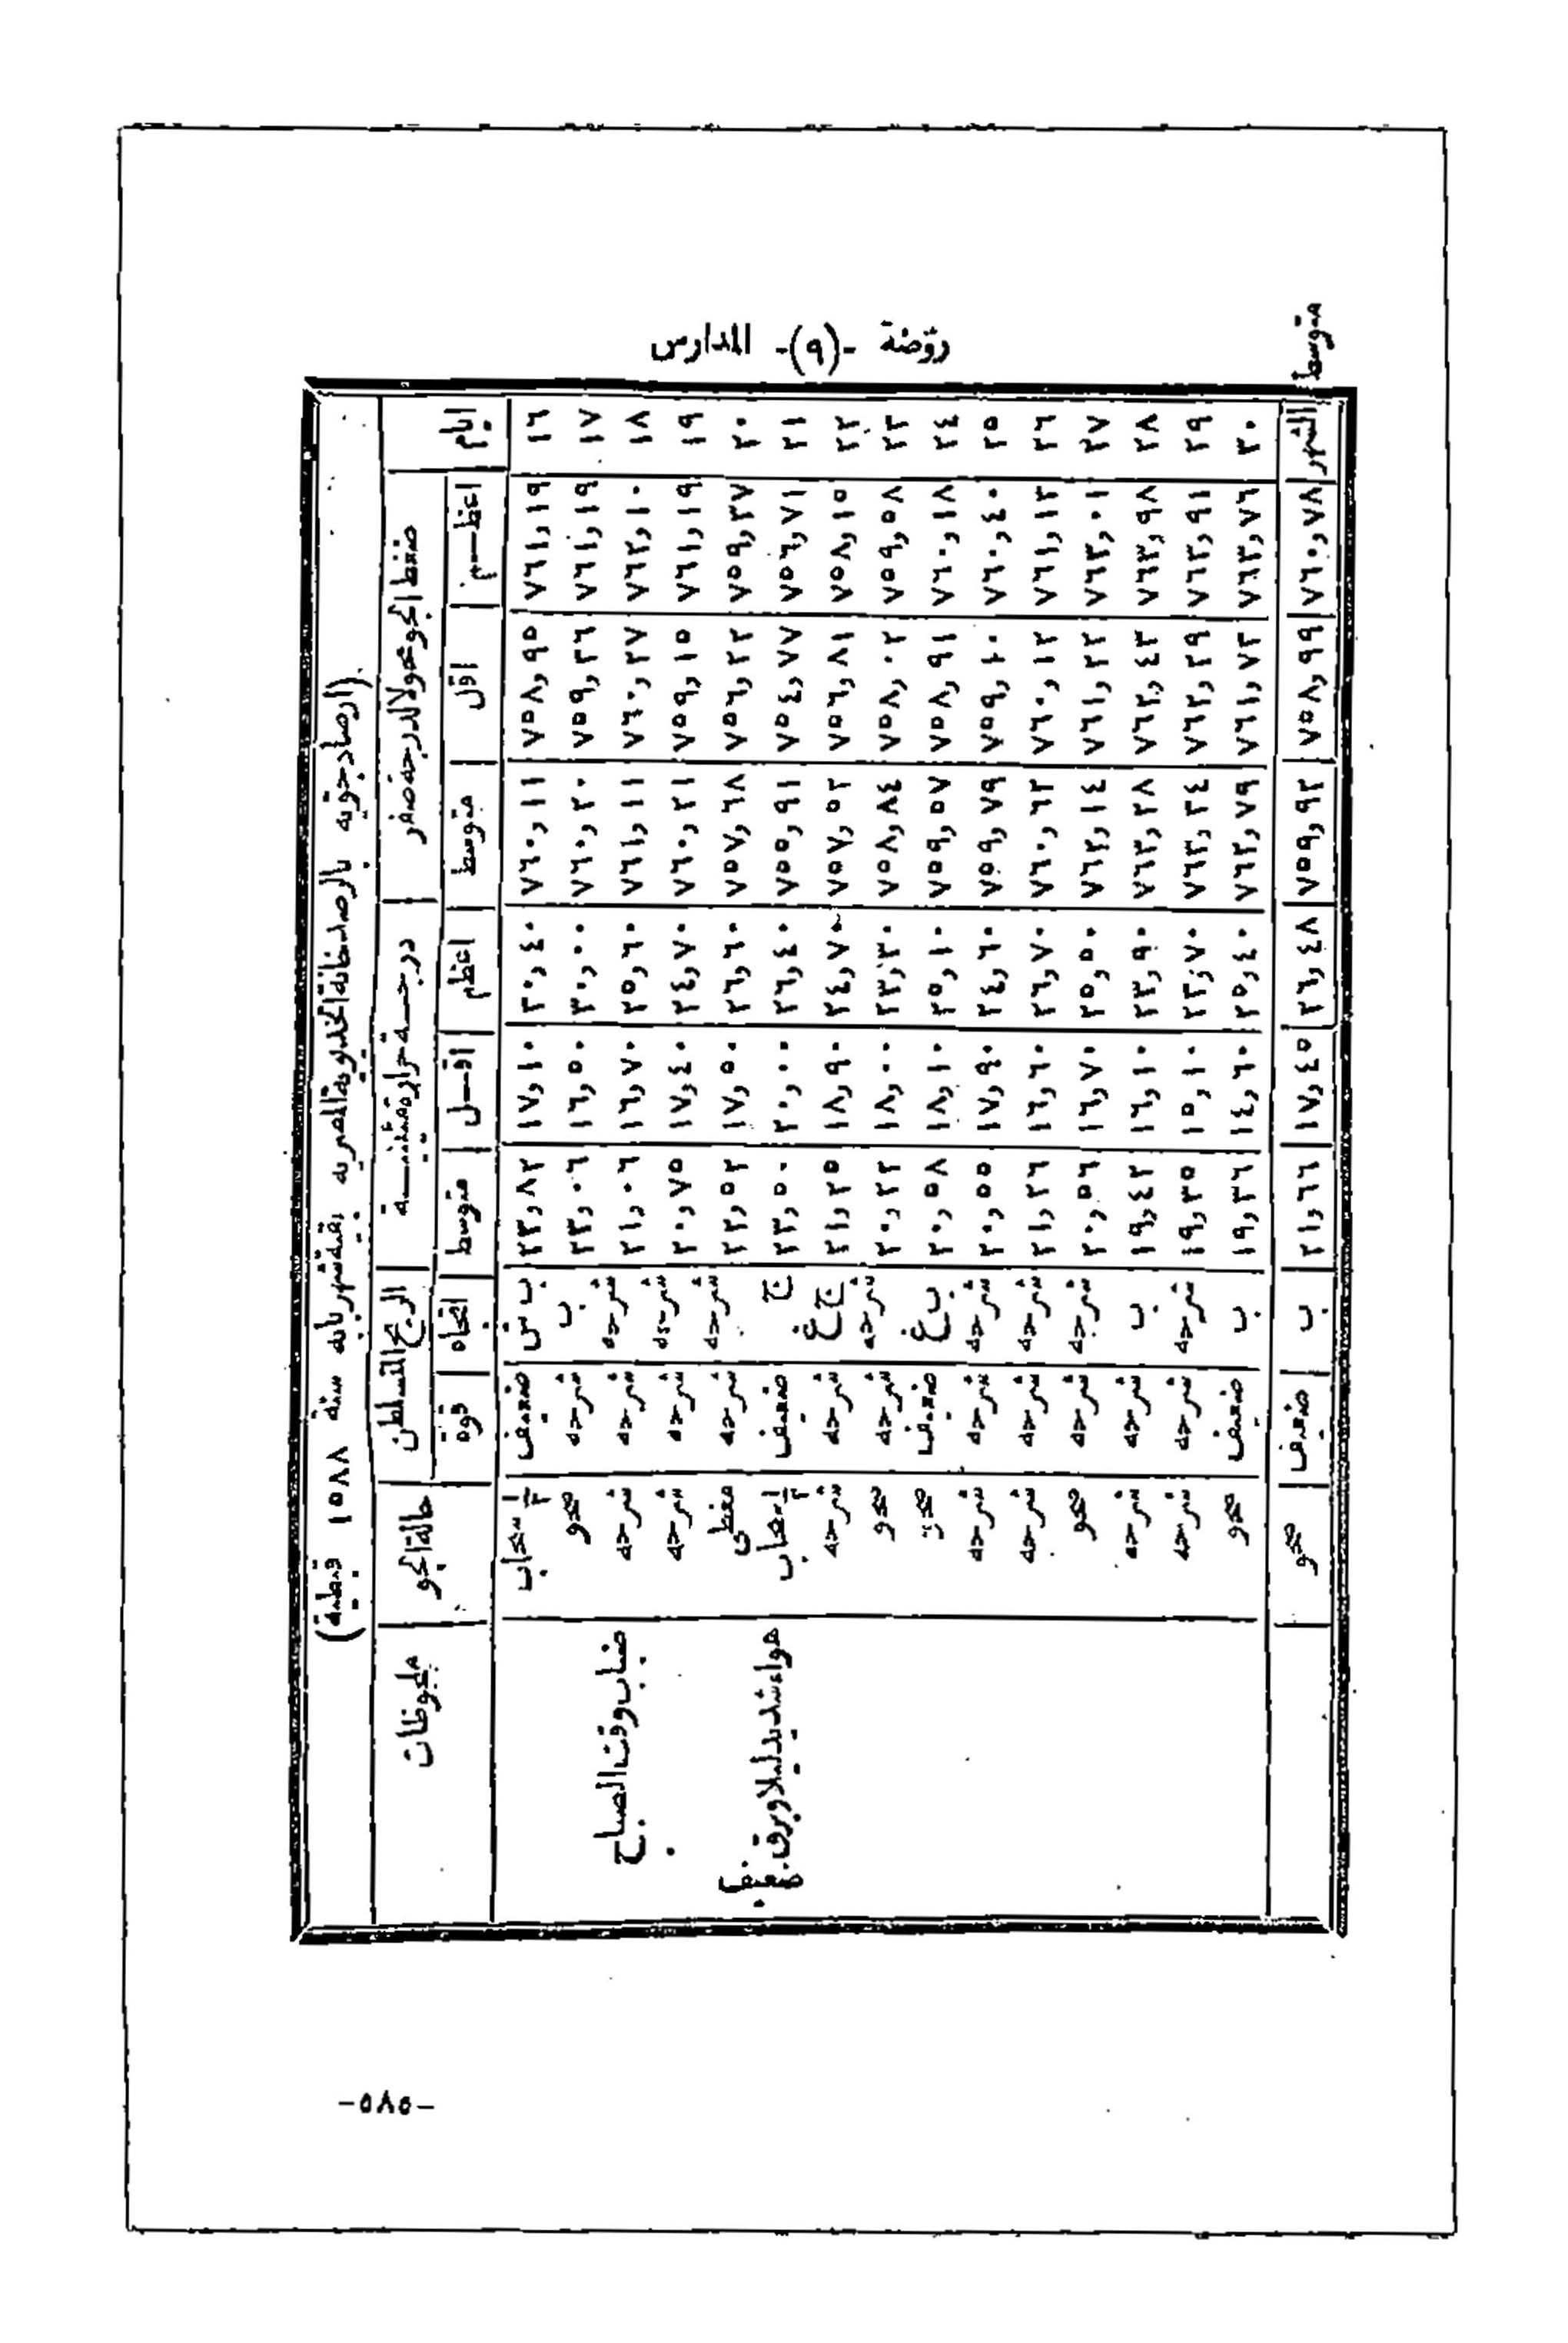 روضة -(٩)- المدارس
(ارصاد جويه بالرصدخانة الخديوية المصريه بقية شهر بابه سنة ١٥٨٨ قبطية)
ايام | ضغط الجو محولا لدرجة صفر | درجة حرارة مئينية | الريح المتسلطن | حالة الجو | ملحوظات
اعظم | اقل | متوسط | اعظم | اقل | متوسط | اتجاه | قوة
١٦ | ٧٦١,١٩ | ٧٥٨,٩٥ | ٧٦٠,١١ | ٣٠,٤٠ | ١٧,١٠ | ٢٣,٨٢ | ب ش | ضعيف | ١/٢ سحاب
١٧ | ٧٦١,١٩ | ٧٥٩,٢٦ | ٧٦٠,٢٠ | ٣٠,٠٠ | ١٦,٥٠ | ٢٣,٠٦ | ب | شرحه | صحو
١٨ | ٧٦٢,١٠ | ٧٦٠,٢٧ | ٧٦١,١١ | ٢٥,٦٠ | ١٦,٧٠ | ٢١,٠٦ | شرحه | شرحه | شرحه | ضباب وقت الصباح
١٩ | ٧٦١,١٩ | ٧٥٩,١٥ | ٧٦٠,٢١ | ٢٤,٧٠ | ١٧,٤٠ | ٢٠,٧٥ | شرحه | شرحه | شرحه
٢٠ | ٧٥٩,٣٧ | ٧٥٦,٢٢ | ٧٥٧,٦٨ | ٢٦,٦٠ | ١٧,٥٠ | ٢٢,٥٢ | شرحه | شرحه | مغطى
٢١ | ٧٥٦,٧١ | ٧٥٤,٧٧ | ٧٥٥,٩١ | ٢٦,٤٠ | ٢٠,٠٠ | ٢٣,٥٠ | ج | ضعيف | ١/٢ سحاب | هواء شديد ليلا وبرق
٢٢ | ٧٥٨,١٥ | ٧٥٦,٨١ | ٧٥٧,٥٢ | ٢٤,٧٠ | ١٨,٩٠ | ٢١,٢٥ | ج غ | شرحه | شرحه
٢٣ | ٧٥٩,٥٨ | ٧٥٨,٠٢ | ٧٥٨,٨٤ | ٢٣,٣٠ | ١٨,٠٠ | ٢٠,٢٢ | شرحه | شرحه | صحو
٢٤ | ٧٦٠,١٨ | ٧٥٨,٩١ | ٧٥٩,٥٧ | ٢٥,١٠ | ١٨,١٠ | ٢٠,٥٨ | ب غ | ضعيف | صحو
٢٥ | ٧٦٠,٤٠ | ٧٥٩,١٠ | ٧٥٩,٧٩ | ٢٤,٦٠ | ١٧,٩٠ | ٢٠,٥٥ | شرحه | شرحه | شرحه
٢٦ | ٧٦١,١٣ | ٧٦٠,١٢ | ٧٦٠,٦٢ | ٢٦,٧٠ | ١٦,٦٠ | ٢١,٢٦ | شرحه | شرحه | شرحه
٢٧ | ٧٦٣,٠١ | ٧٦١,٢٢ | ٧٦٢,١٤ | ٢٥,٥٠ | ١٦,٧٠ | ٢٠,٥٦ | شرحه | شرحه | صحو
٢٨ | ٧٦٣,٩٨ | ٧٦٢,٤٣ | ٧٦٣,٢٨ | ٢٣,٩٠ | ١٦,١٠ | ١٩,٤٢ | ب | شرحه | شرحه
٢٩ | ٧٦٣,٩١ | ٧٦٢,٢٩ | ٧٦٣,٢٤ | ٢٣,٧٠ | ١٥,١٠ | ١٩,٣٥ | شرحه | شرحه | شرحه
٣٠ | ٧٦٣,٧٦ | ٧٦١,٧٣ | ٧٦٢,٧٩ | ٢٥,٤٠ | ١٤,٦٠ | ١٩,٣٦ | ب | ضعيف | صحو
متوسط الشهر | ٧٦٠,٧٨ | ٧٥٨,٩٩ | ٧٥٩,٩٢ | ٢٦,٤٨ | ١٧,٤٥ | ٢١,٦٦ | ب | ضعيف | صحو
-٥٨٥-